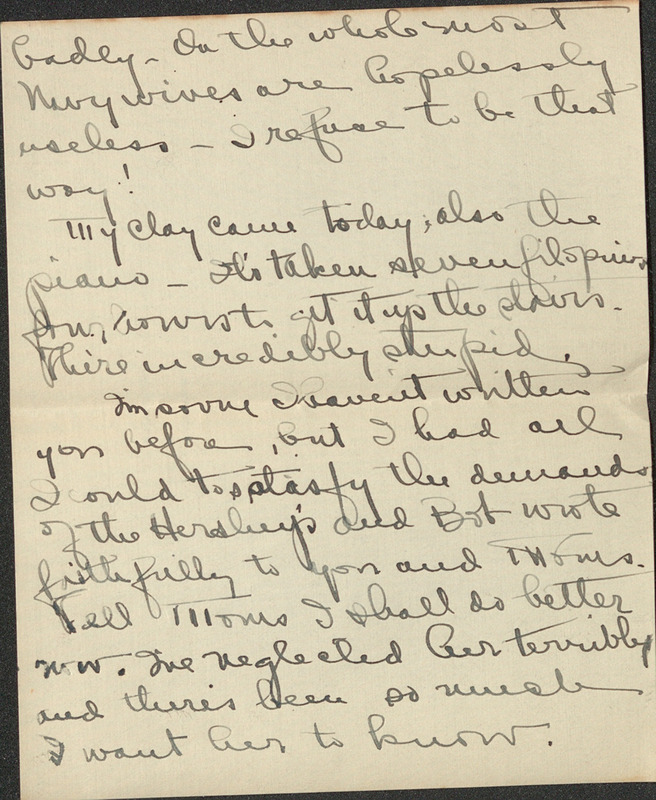 badly - On the whole most
Navy wives are hopelessly
useless - I refuse to be that
way!
My clay came today, also the
piano - It's taken seven filopinos
four hours to get it up the stairs.
There incredibly stupid.
I'm sorry I haven't written
you before, but I had all
I could to satisfy the demands
of the Hershey's and Bob wrote
faithfully to you and Moms.
Tell Moms I shall do better
now. I've neglected her terribly
and there's been so much
I want her to know.